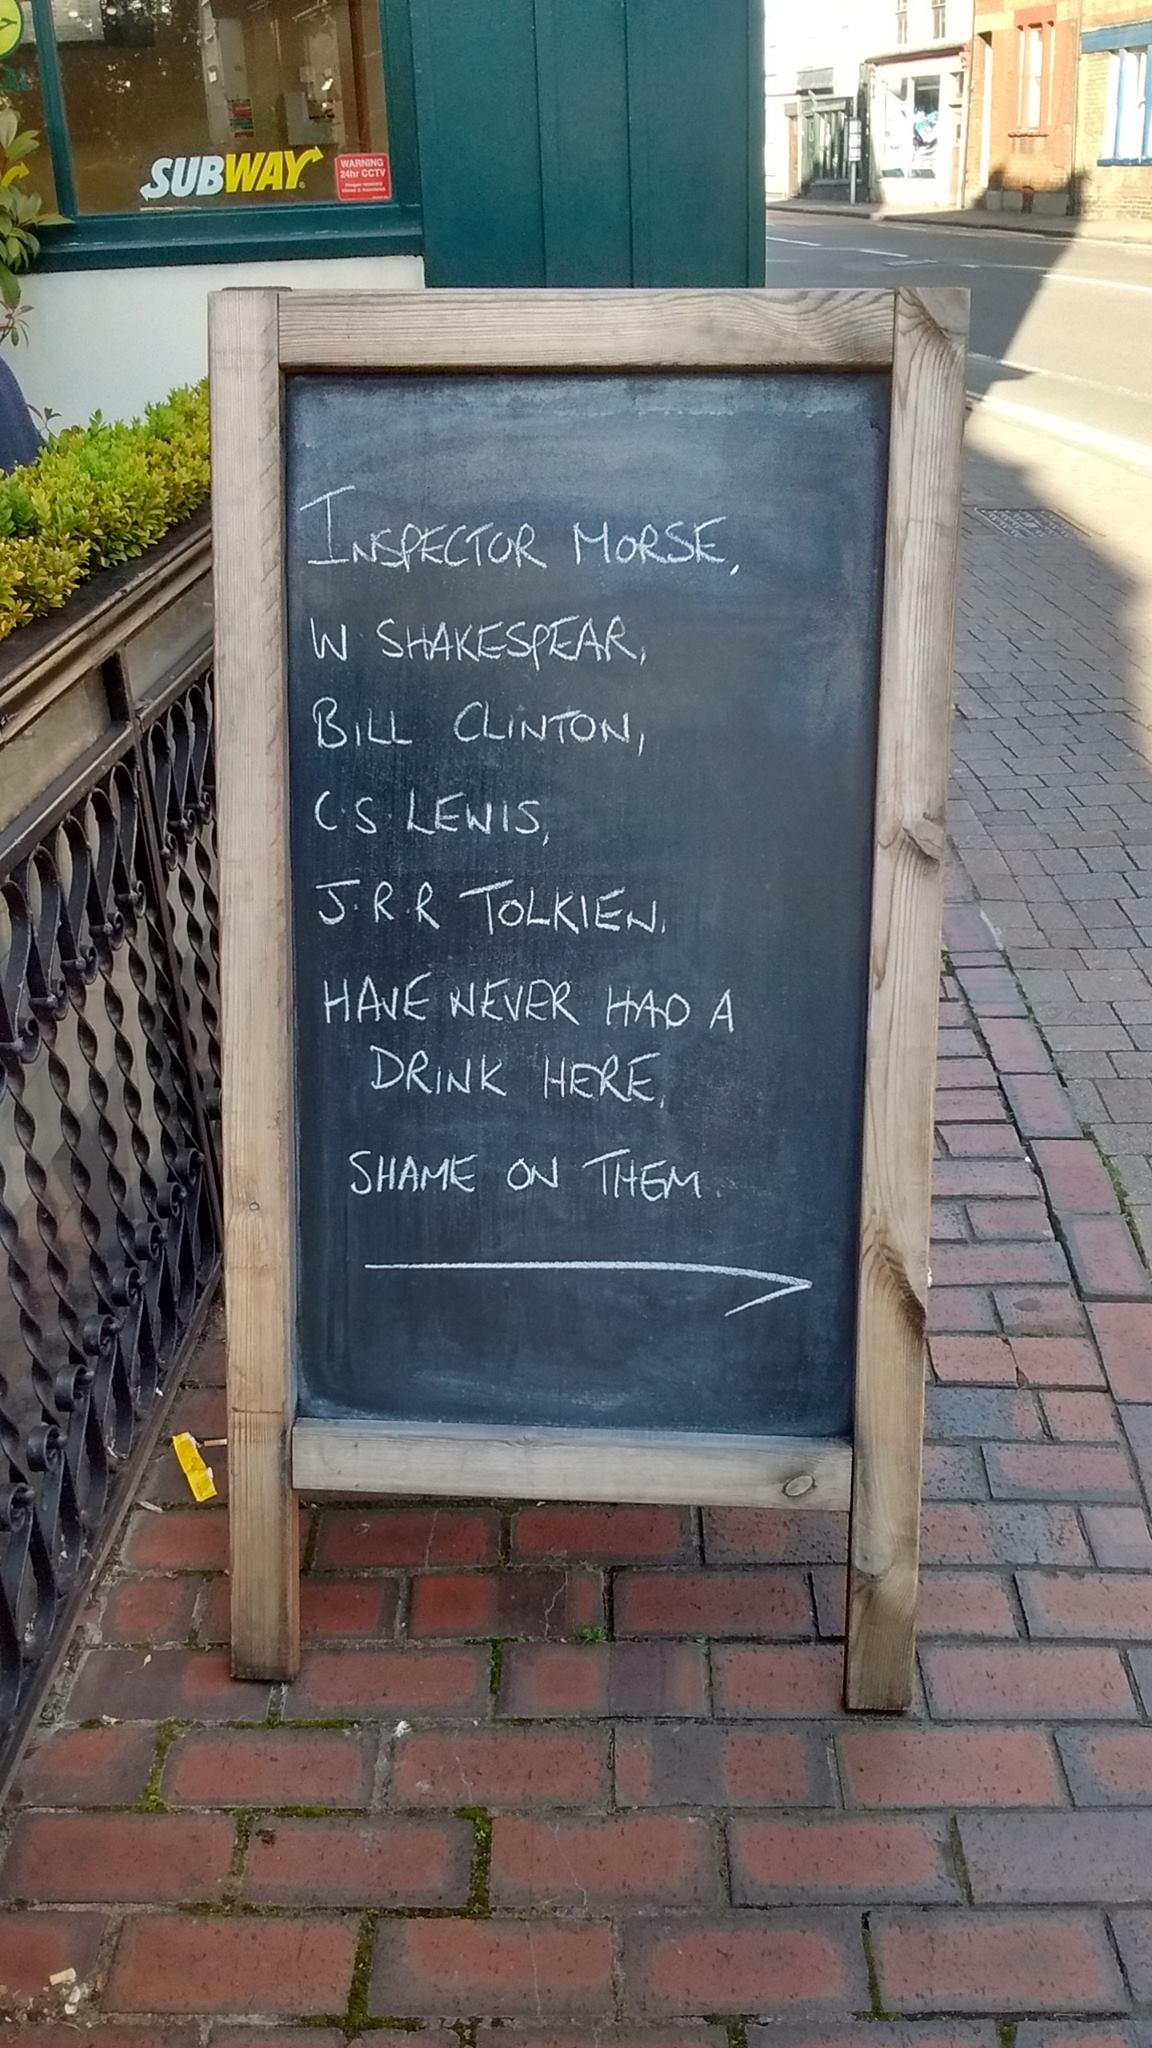 SUBWAY
WARNING
24hr CCTV
INSPECTOR MORSE,
W SHAKESPEAR,
BILL CLINTON,
C·S LEWIS,
J.R.R TOLKIEN.
HAVE NEVER HAD A
DRINK HERE,
SHAME ON THEM.